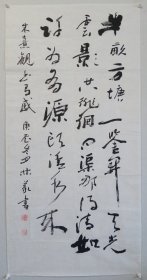 半畝方塘一鑒開天光
雲影共徘徊問渠那得清如
許为有源頭活水來
朱熹觀书有感 書